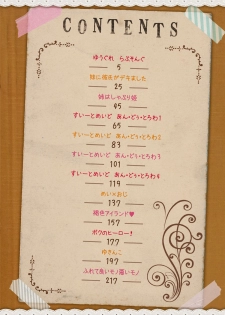 CONTENTS
ゆうぐれ らぶそんぐ
5
妹に彼氏がデキました
25
姉はしゃぶり姫
45
すい〜とめいど あん・どぅ・とろわ1
65
すい〜とめいど あん・どぅ・とろわ2
83
すい〜とめいど あん・どぅ・とろわ3
101
すい〜とめいど あん・どぅ・とろわ4
119
めい×おじ
137
桃色アイランド♥
157
ボクのヒーロー!
177
ゆきんこ
197
ふれて良いモノ悪いモノ
217